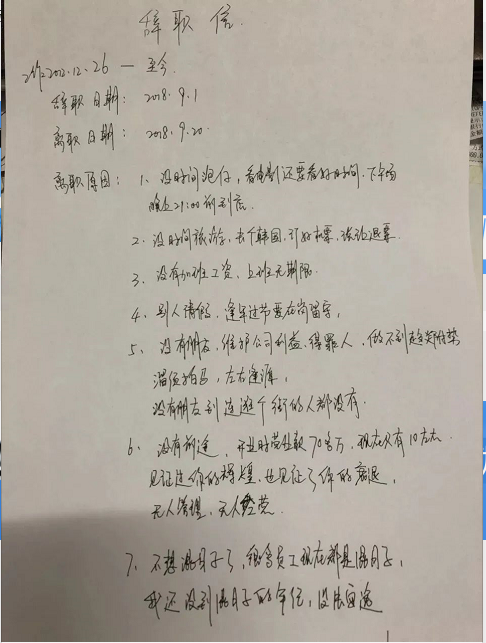 辞职信
工作2012.12.26 — 至今
辞职日期: 2018.9.1
离职日期: 2018.9.20.
离职原因: 1、没时间泡仔, 看电影还要看好时间, 下午场
晚上21:00前到底.
2、没时间旅游, 去个韩国, 订好机票, 被迫退票.
3、没有加班工资, 上班无期限.
4、别人请假, 逢年过节要在岗留守,
5、没有朋友, 维护公司利益, 得罪人, 做不到趋炎附势
溜须拍马, 左右逢源,
没有朋友到连逛个街的人都没有.
6、没有前途, 开业时营业款70多万, 现在只有10左右.
见证过你的辉煌, 也见证了你的衰退,
无人管理, 无人经营.
7、不想混日子了, 很多员工现在都是混日子,
我还没到混日子的年纪, 没法面对